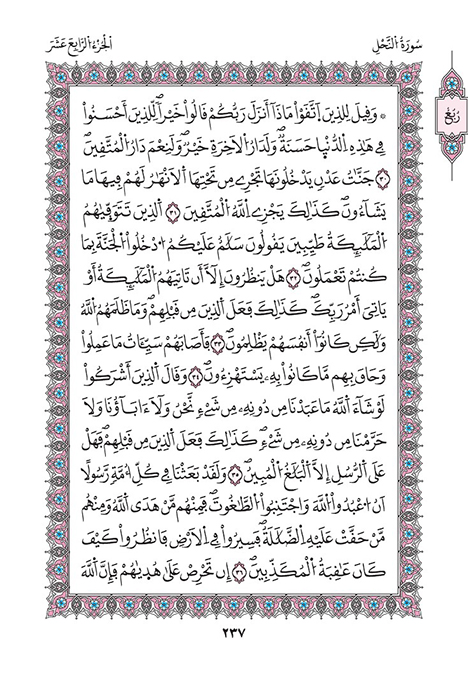 سُورَةُ النَّحْلِ
الْجُزْءُ الرَّابِعَ عَشَرَ
رُبُعُ
۞ وَقِيلَ لِلذِينَ اَتَّقَوْاْ مَاذَآ أَنزَلَ رَبُّكُمْ قَالُواْ خَيْراٗۖ لِّلذِينَ أَحْسَنُواْ
فِے هَٰذِهِ اِلدُّنْيَا حَسَنَةٞۖ وَلَدَارُ اُلَاخِرَةِ خَيْرٞۖ وَلَنِعْمَ دَارُ اُلْمُتَّقِينَۖ
٣٠ جَنَّٰتُ عَدْنٖ يَدْخُلُونَهَا تَجْرِے مِن تَحْتِهَا اَلَانْهَٰرُ لَهُمْ فِيهَا مَا
يَشَآءُونَۖ كَذَٰلِكَ يَجْزِے اِللَّهُ اُلْمُتَّقِينَ ٣١ اَلذِينَ تَتَوَفَّيٰهُمُ
اُلْمَلَٰٓئِكَةُ طَيِّبِينَ يَقُولُونَ سَلَٰمٌ عَلَيْكُمُ اُدْخُلُواْ اُلْجَنَّةَ بِمَا
كُنتُمْ تَعْمَلُونَۖ ٣٢ هَلْ يَنظُرُونَ إِلَّآ أَن تَاتِيَهُمُ اُلْمَلَٰٓئِكَةُ أَوْ
يَاتِيَ أَمْرُ رَبِّكَۖ كَذَٰلِكَ فَعَلَ اَلذِينَ مِن قَبْلِهِمْۖ وَمَا ظَلَمَهُمُ اُللَّهُ
وَلَٰكِن كَانُوٓاْ أَنفُسَهُمْ يَظْلِمُونَۖ ٣٣ فَأَصَابَهُمْ سَيِّـَٔاتُ مَا عَمِلُواْ
وَحَاقَ بِهِم مَّا كَانُواْ بِهِۦ يَسْتَهْزِءُونَۖ ٣٤ وَقَالَ اَلذِينَ أَشْرَكُواْ
لَوْ شَآءَ اَللَّهُ مَا عَبَدْنَا مِن دُونِهِۦ مِن شَےْءٖ نَّحْنُ وَلَآ ءَابَآؤُنَا وَلَا
حَرَّمْنَا مِن دُونِهِۦ مِن شَےْءٖۖ كَذَٰلِكَ فَعَلَ اَلذِينَ مِن قَبْلِهِمْۖ فَهَلْ
عَلَى اَلرُّسُلِ إِلَّا اَلْبَلَٰغُ اُلْمُبِينُۖ ٣٥ وَلَقَدْ بَعَثْنَا فِے كُلِّ أُمَّةٖ رَّسُولاً
اَنُ اُعْبُدُواْ اُللَّهَ وَاجْتَنِبُواْ اُلطَّٰغُوتَۖ فَمِنْهُم مَّنْ هَدَى اَللَّهُ وَمِنْهُم
مَّنْ حَقَّتْ عَلَيْهِ اِلضَّلَٰلَةُۖ فَسِيرُواْ فِے اِلَارْضِ فَانظُرُواْ كَيْفَ
كَانَ عَٰقِبَةُ اُلْمُكَذِّبِينَۖ ٣٦ إِن تَحْرِصْ عَلَىٰ هُدَيٰهُمْ فَإِنَّ اَللَّهَ
٢٣٧